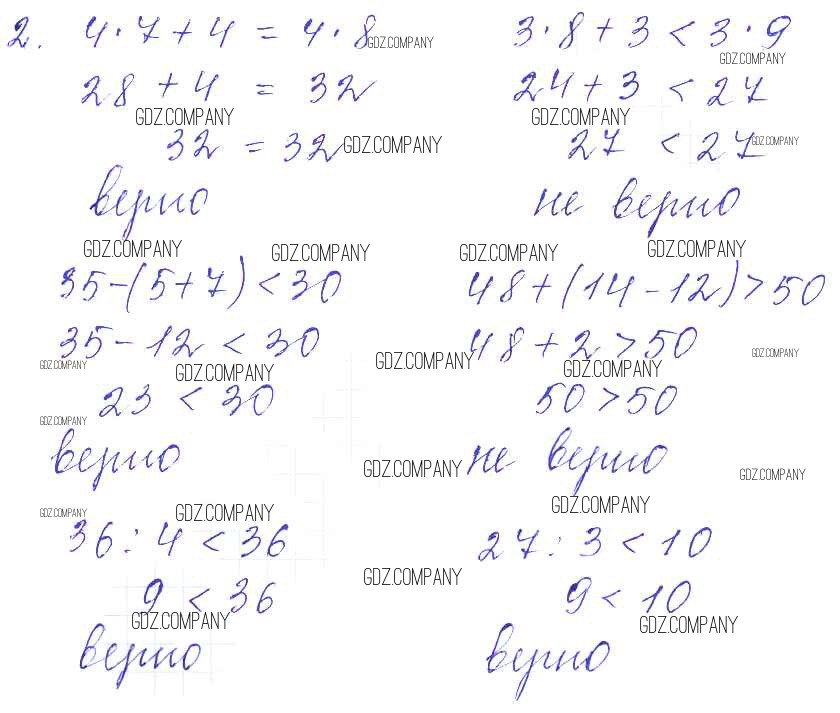 2. 4·7+4=4·8 3·8+3<3·9
GDZ.COMPANY
GDZ.COMPANY
28+4=32 24+3<27
GDZ.COMPANY GDZ.COMPANY
32=32 GDZ.COMPANY 27<27 GDZ.COMPANY
верно не верно
GDZ.COMPANY GDZ.COMPANY GDZ.COMPANY GDZ.COMPANY
35-(5+7)<30 48+(14-12)>50
35-12<30 48+2>50
GDZ.COMPANY GDZ.COMPANY GDZ.COMPANY GDZ.COMPANY GDZ.COMPANY
23<30 50>50
GDZ.COMPANY
верно не верно
GDZ.COMPANY GDZ.COMPANY
GDZ.COMPANY GDZ.COMPANY GDZ.COMPANY
36:4<36 27:3<10
GDZ.COMPANY
9<36 9<10
GDZ.COMPANY GDZ.COMPANY
верно верно